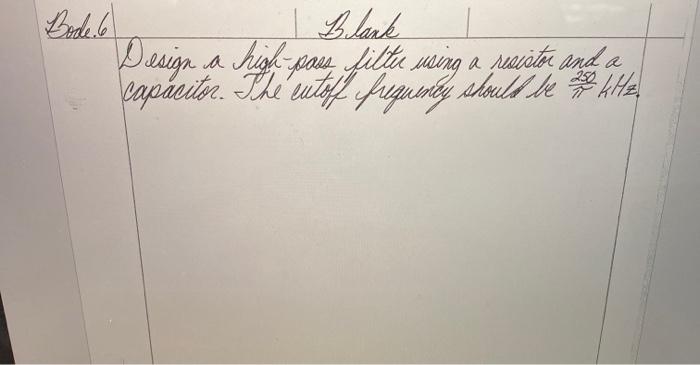 Bode.6
Blank
Design a high-pass filter using a resistor and a
capacitor. The cutoff frequency should be 250/π kHz.